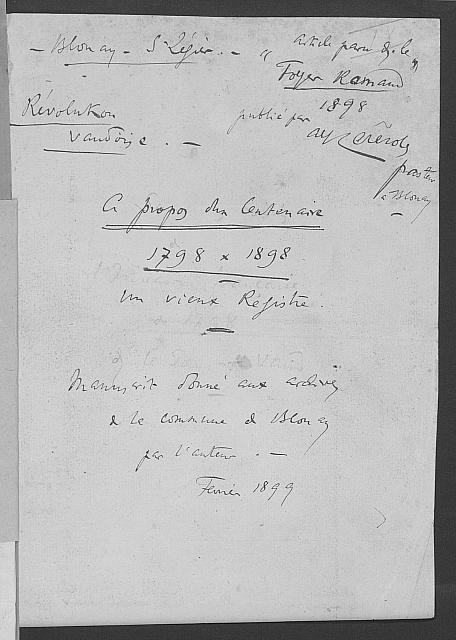 - Blonay - St Légier. -
" article paru ds le "
Foyer Romand
1898
Révolution
vaudoise. -
publié par
Cérésole
pasteur
à Blonay
-
A propos d'un Centenaire
1798 x 1898
-
un vieux Régistre.
-
Manuscrit donné aux archives
de la commune de Blonay
par l'auteur. -
Fevrier 1899